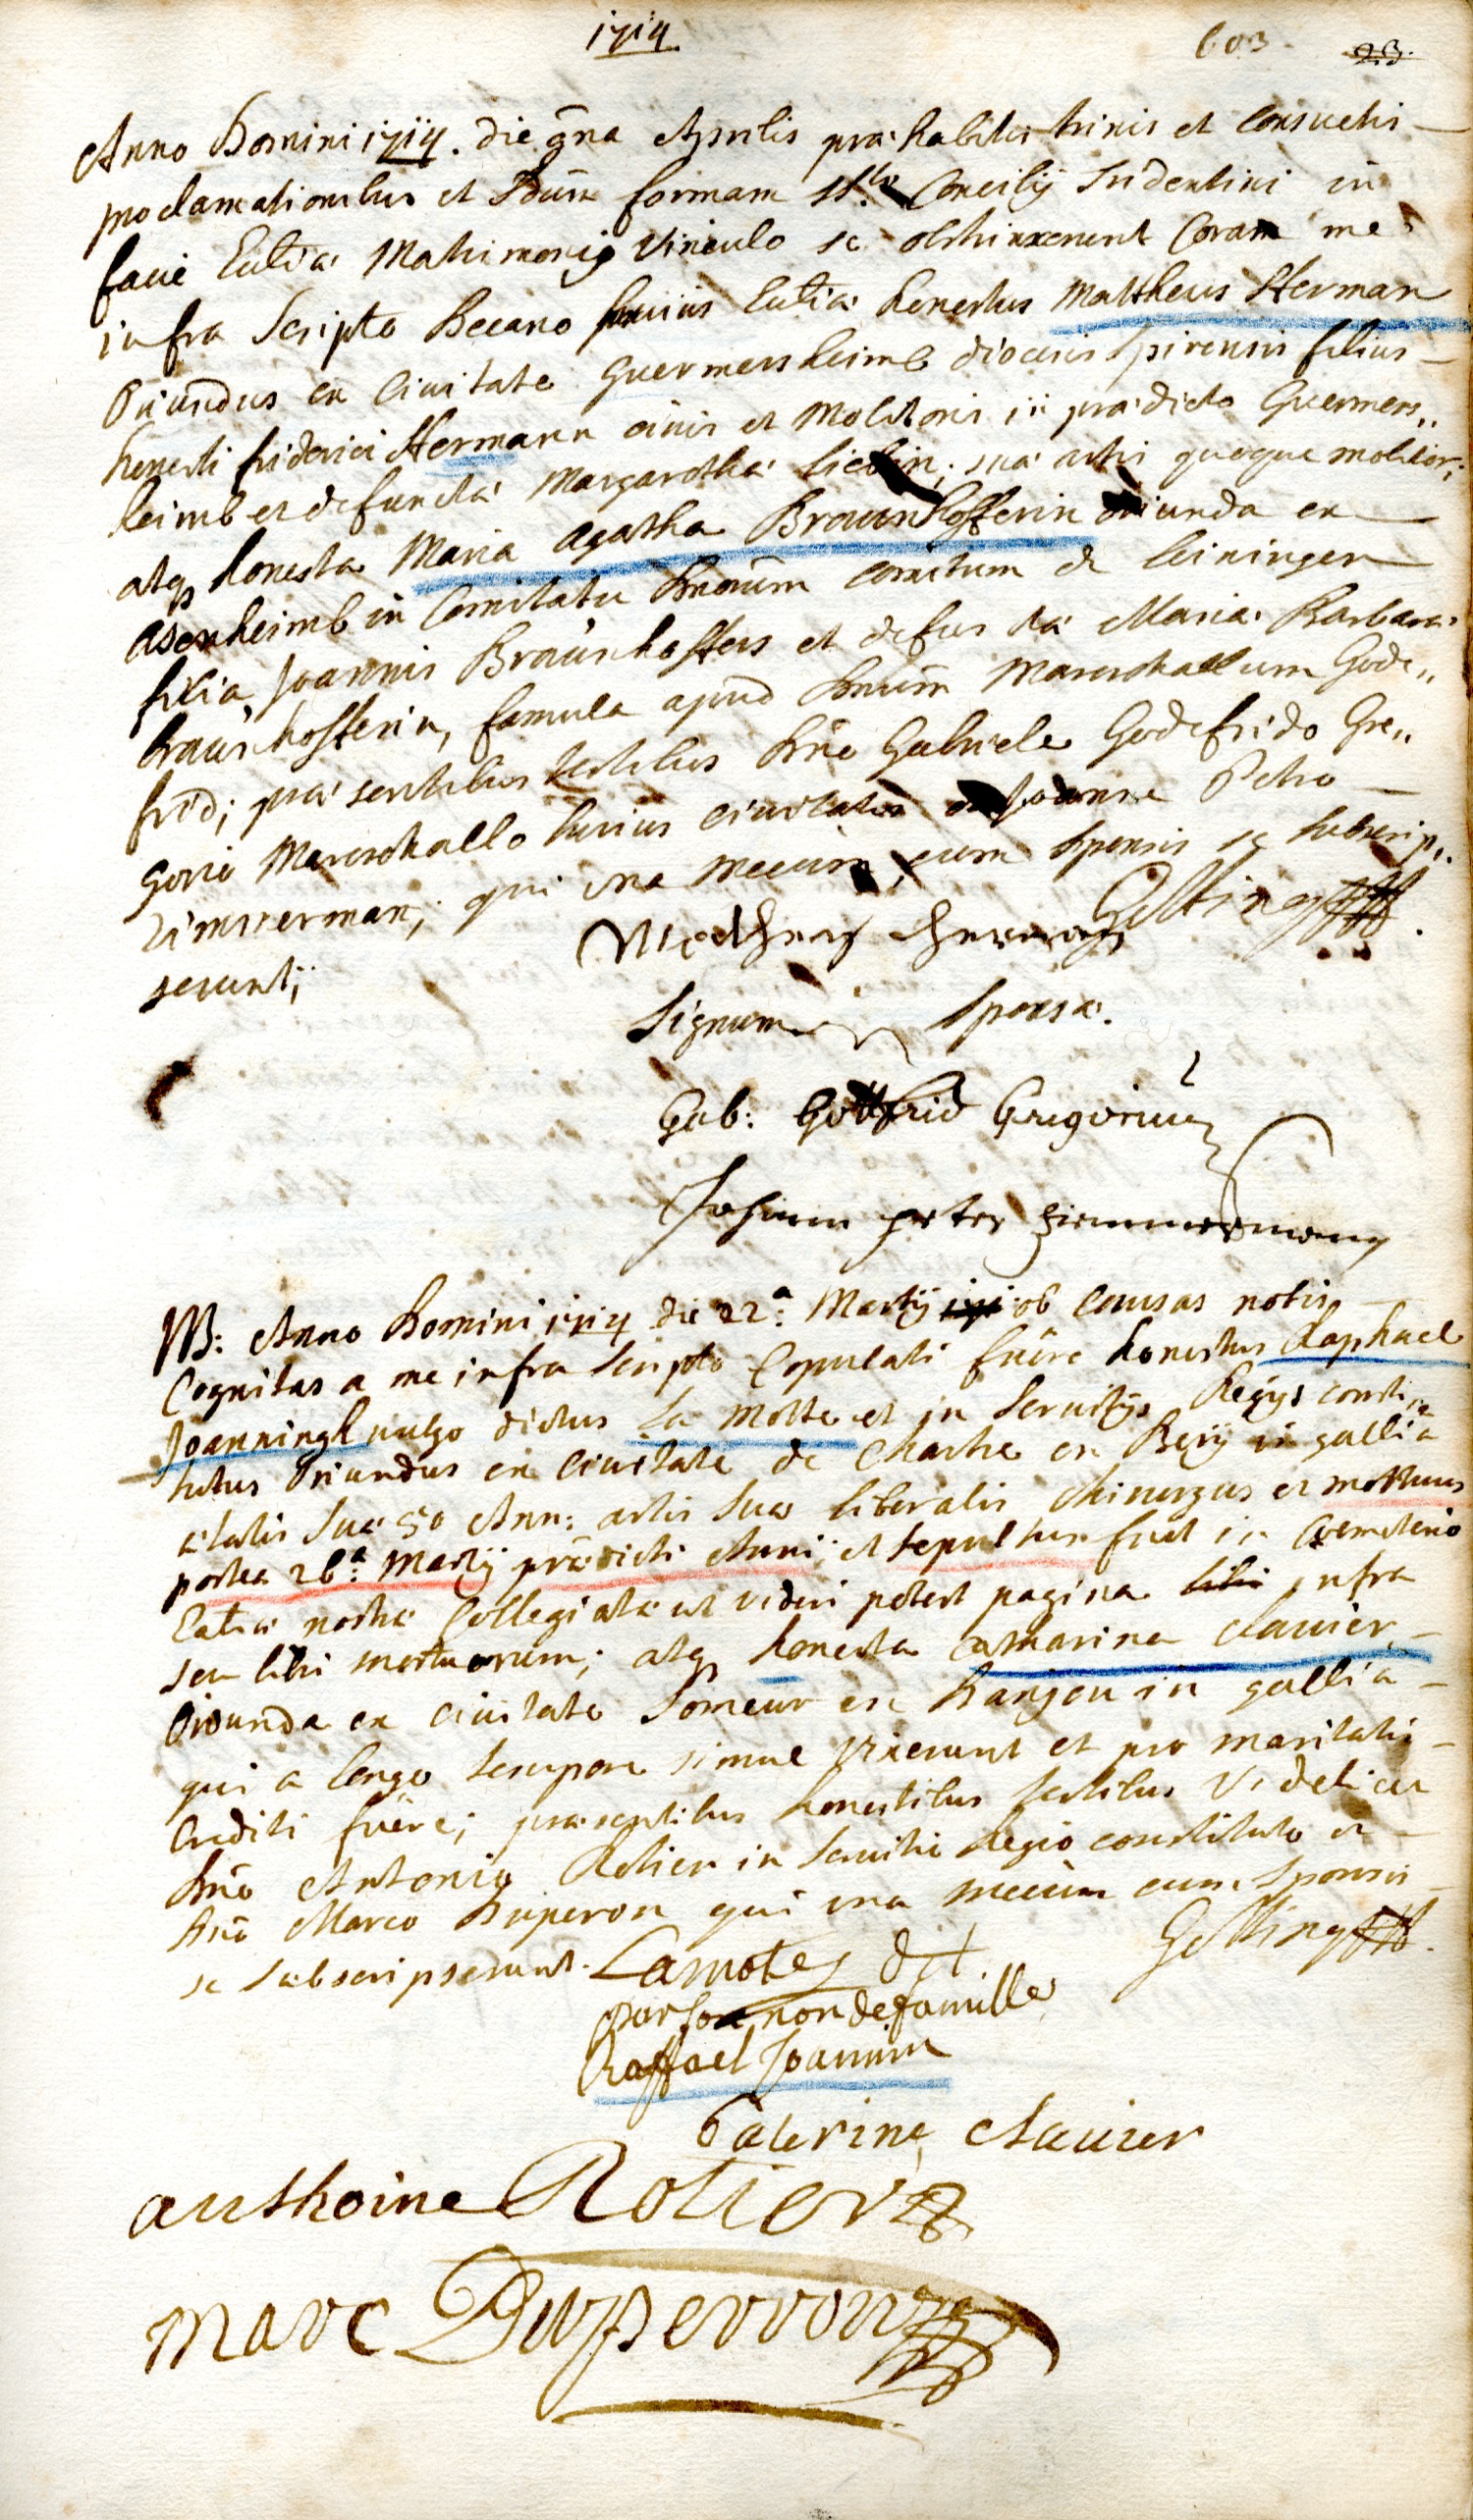 1714
603. 23.
Anno Domini 1714. die 9na Aprilis præhabitis trinis et consuetis
proclamationibus et Sdum formam Sti Concilij Tridentini in
facie Eccliæ Matrimonij vinculo se obstrinxerunt Coram me
infra Scripto Decano huius Eccliæ honestus Mattheus Herman
Oriundus ex Civitate Guermersheimb diocesis Spirensis filius
honesti friderici Hermann civis et Molitoris in prædicto Guermers,,
heimb et defunctæ Margarethæ; suæ artis quoque molitor;
atq honesta Maria Agatha Braunhofferin oriunda ex
Asenheimb in Comitatu Dnorum Comitum de Leiningen
filia Joannis Braunhoffers et defunctæ Mariæ Barbaræ
Braunhofferin, famula apud Dnum Mareschallum Gode,,
frid; præsentibus testibus Dno Gabriele Godefrido Gre,,
gorio Mareschallo huius civitatis et Joanne Petro
Zimmerman; qui una mecum, cum sponsis se subscrip,,
serunt;
Goltings
Matheas Herman
Signum Sponsæ.
Gab: Gottfrid Gregorius
Johann peter Zimmermann
NB: Anno Domini 1714 die 22a: Martij ob Causas nobis
Cognitas a me infra Scripto Copulati fuêre honestus Raphael
Joanningh vulgo dictus La Motte et in Servitijs Regijs consti,,
tutus Oriundus ex Civitate de Chartre en Bery in gallia
ætatis Suæ 50 Ann: artis suæ liberalis Chirurgus et mortuus
postea 26a: Martij prædicti Anni; et sepultus fuit in Cæmeterio
Eccliæ nostræ Collegiatæ ut videri potest pagina infra
seu libri mortuorum; atq honesta Catharina Clauier,
Oriunda ex civitate Someur en Danjou in gallia
qui a longo tempore simul vixerunt et pro maritatis
Crediti fuêre; præsentibus honestibus testibus Videlicet
Dno Antonio Rotier in Servitio Regio constituto et
Dno Marco Duperon qui una mecum cum Sponsis
se subscripserunt.
Goltings
Lamote dit
par son non de famille
Raffael Joannin
Caterine Clauier
anthoine Rotier
marc Duperron